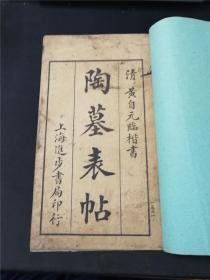 清 黄自元臨楷書
陶墓表帖
上海進步書局印行